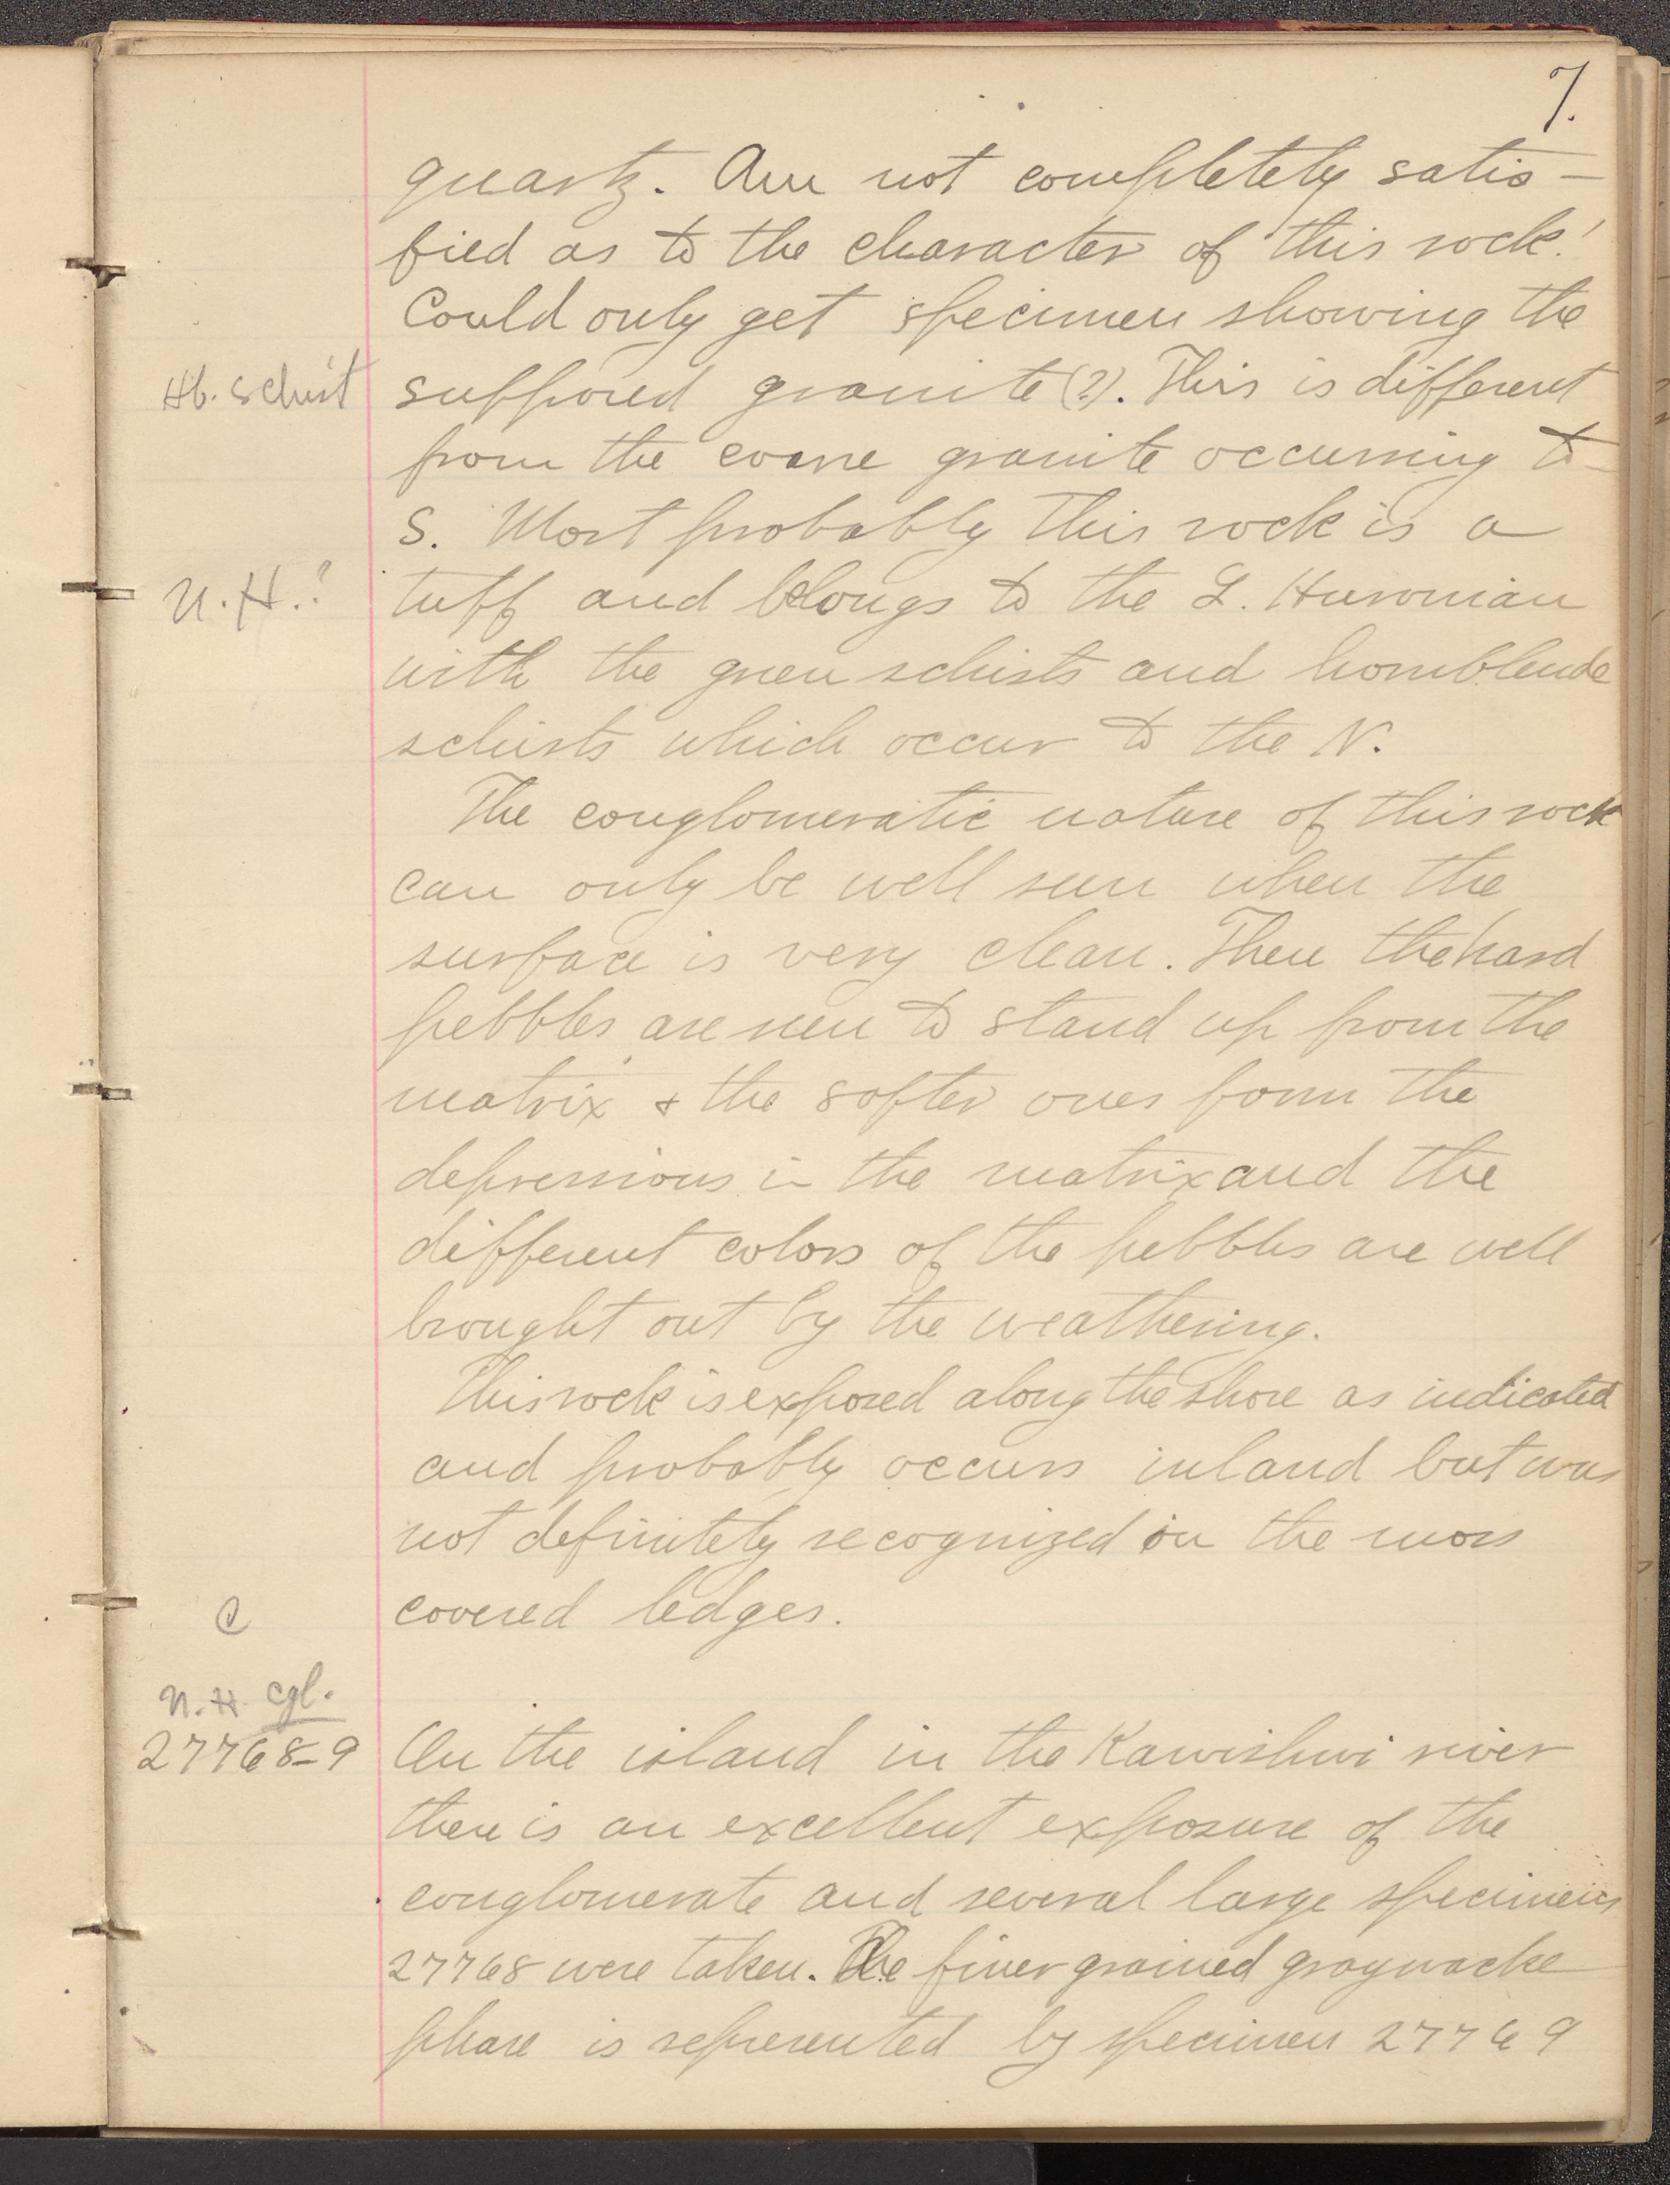 7.
quartz. Am not completely satis-
fied as to the character of this rock!
Could only get specimen showing the
Hb. Schist supposed granite (?). This is different
from the coarse granite occurring to
S. Most probably this rock is a
U.H.? tuff and belongs to the L. Huronian
with the green schists and hornblende
schists which occur to the N.
The conglomeratic nature of this rock
can only be well seen when the
surface is very clean. Then the hard
pebbles are seen to stand up from the
matrix & the softer ones form the
depressions in the matrix and the
different colors of the pebbles are well
brought out by the weathering.
This rock is exposed along the shore as indicated
and probably occurs inland but was
not definitely recognized in the moss
covered ledges.
C
U.H. cgl.
27768-9 On the island in the Kawishwi river
there is an excellent exposure of the
conglomerate and several large specimens
27768 were taken. The finer grained graywacke
phase is represented by specimen 27769